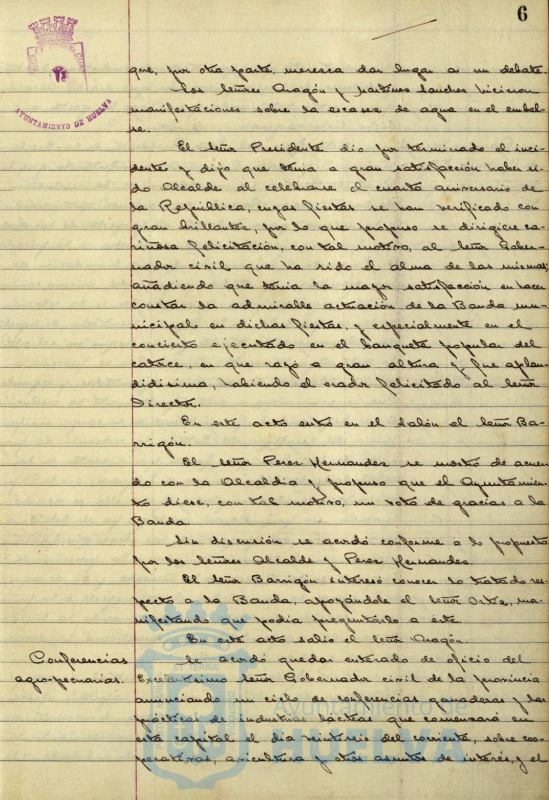 6
AYUNTAMIENTO DE HUELVA
que, por otra parte, merezca dar lugar a un debate.
Los Señores Aragón y Martínez Sánchez hicieron
manifestaciones sobre la escasez de agua en el embal-
se.
El Señor Presidente dio por terminado el inci-
dente y dijo que tenía a gran satisfacción haber si-
do Alcalde al celebrarse el cuarto aniversario de
la República, cuyas fiestas se han verificado con
gran brillantez, por lo que propuso se dirigiese ca-
riñosa felicitación, con tal motivo, al Señor Gober-
nador civil que ha sido el alma de las mismas,
añadiendo que tenía la mayor satisfacción en hacer
constar la admirable actuación de la Banda mu-
nicipal en dichas fiestas, y especialmente en el
concierto ejecutado en el banquete popular del
catorce, en que rayó a gran altura y fue aplau-
didísima, habiendo el orador felicitado al Señor
Director.
En este acto entró en el salón el Señor Ba-
rrigón.
El Señor Perez Hernandez se mostró de acuer-
do con la Alcaldía y propuso que el Ayuntamien-
to diese, con tal motivo, un voto de gracias a la
Banda.
Sin discusión se acordó conforme a lo propuesto
por los Señores Alcalde y Perez Hernandez.
El Señor Barrigón interesó conocer lo tratado res-
pecto a la Banda, apoyándole el Señor Ortiz, ma-
nifestando que podía preguntarlo a éste.
En este acto salió el Señor Aragón.
Conferencias
agro-pecuarias.
Se acordó quedar enterado de oficio del
Excelentísimo Señor Gobernador civil de la provincia
anunciando un ciclo de conferencias ganaderas y las
prácticas de industrias lácteas que comenzará en
esta capital el día veintiseis del corriente, sobre coo-
perativas, avicultura y otros asuntos de interés, y el
Ayuntamiento de
HUELVA